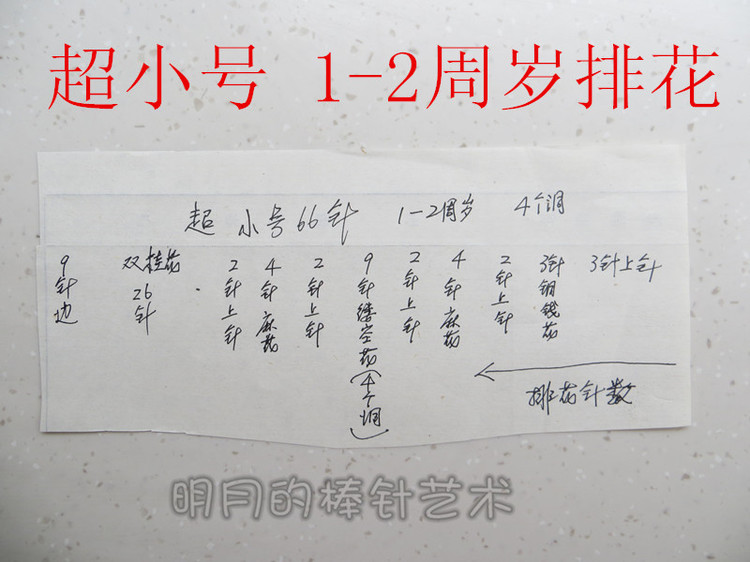 超小号 1-2周岁排花
超 小号66针 1-2周岁 4个洞
9针边
双桂花26针
2针上针
4针麻花
2针上针
9针缕空花(4个洞)
2针上针
4针麻花
2针上针
3针铜钱花
3针上针
排花针数
明月的棒针艺术